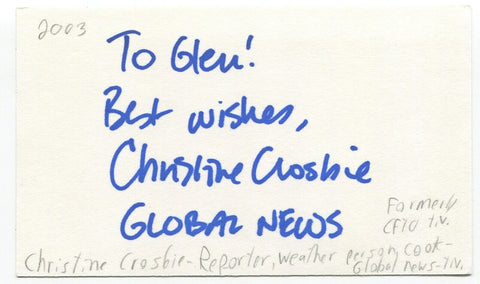 2003
To Glen!
Best wishes,
Christine Crosbie
GLOBAL NEWS
Formerly
CFTO T.V.
Christine Crosbie - Reporter, Weather person, Cook -
Global News - T.V.